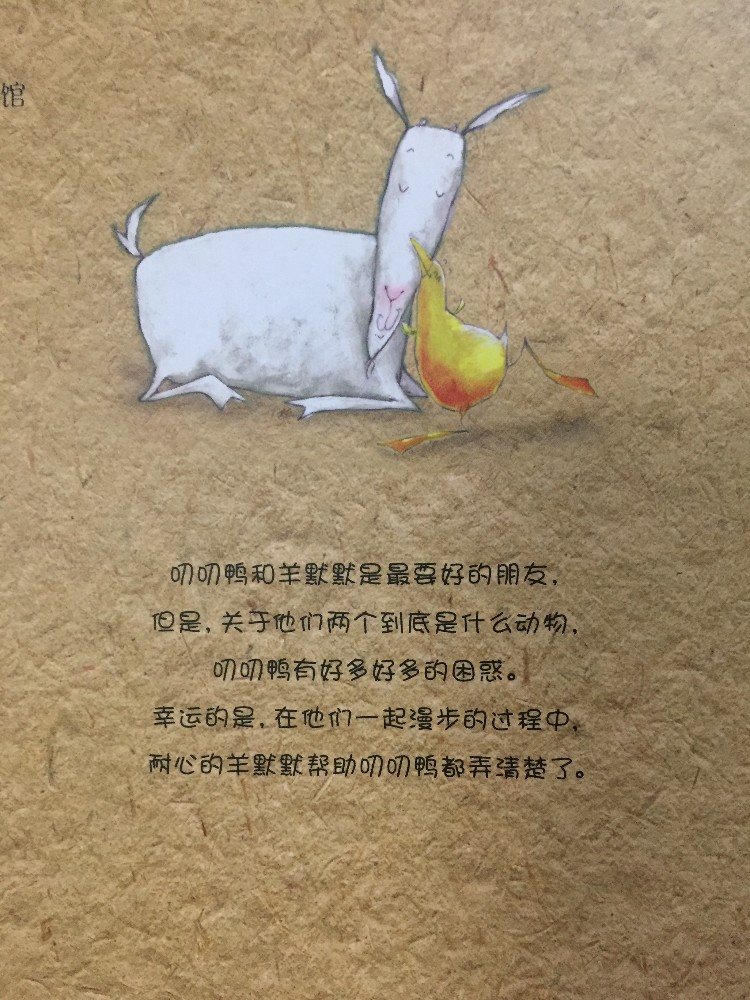 馆
叨叨鸭和羊默默是最要好的朋友,
但是,关于他们两个到底是什么动物,
叨叨鸭有好多好多的困惑。
幸运的是,在他们一起漫步的过程中,
耐心的羊默默帮助叨叨鸭都弄清楚了。